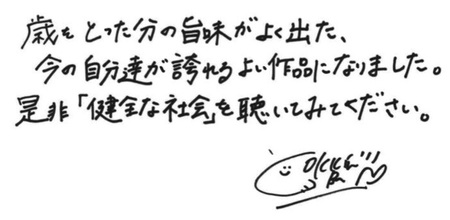 歳をとった分の旨味がよく出た、
今の自分達が誇れるよい作品になりました。
是非「健全な社会」を聴いてみてください。